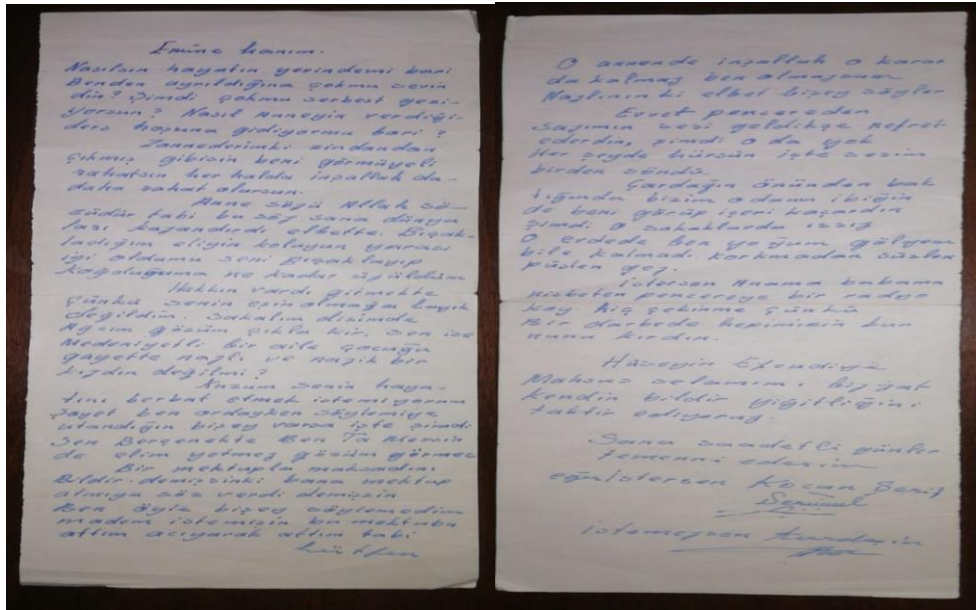 Emine hanım.
Nasılsın hayatın yerindemi bari
Benden ayrıldığına çokmu sevin
din? Şimdi çokmu serbest gezi-
yorsun? Nasıl Anneyin verdiği
ders hoşuna gidiyormu bari?
Zannederimki zindandan
çıkmış gibisin beni görmüyeli
rahatsın her halda inşallah da-
daha rahat olursun.
Anne sözü Allah sö-
züdür tabi bu söz sana dünya
ları kazandırdı elbette. Bıçak-
ladığım eliyin koluyun yarası
iyi oldumu seni Bıçaklayıp
koğduğuma ne kadar üzülüyom
Hakkın vardı gitmekte
çünkü senin eşin olmağa layık
değildim. Sakalım dizimde
Ağzım gözüm çıkla kir, sen ise
Medeniyetli bir aile çocuğu
gayette nazlı ve nazik bir
kızdın değilmi?
Kuzum senin haya-
tını berbat etmek istemiyorum
Şayet ben ordayken söylemiye
utandığın bişey varsa işte şimdi
Sen Berçenekte Ben Ta Mersin
de elim yetmez gözüm görmez
Bir mektupla maksadını
Bildir. demişsinki bana mektup
atmıya söz verdi demişsin
Ben öyle bişey söylemedim
madem istemişin bu mektubu
attım acıyarak attım tabi
Lütfen
O annende inşallah o karar
da kalmaz ben olmaysam
Nazlının ki elbet bişey söyler
Evvet pencereden
sazımın sesi geldikçe nefret
ederdin, şimdi o da yok
Her şeyde hürsün işte sesim
birden söndü.
Çardağın önünden bak
tığında bizim odanın
de beni görüp içeri kaçardın
şimdi o sokaklarda ıssız
O erdede Ben yoğum gölgem
bile kalmadı. korkmadan süzlen
püslen gez.
İstersen Anama babama
nisbeten pencereye bir radyo
koy. Hiç çekinme çünkü
Bir darbede hepimizin bur
nunu kırdın.
Hüseyin Efendiye
Mahsus selamım, bizzat
kendin bildir yiğitliğini
taktir ediyoruz.
Sana saadetli günler
temenni ederim
eğristersen Kocan Şerif
istemezsen kardaşın